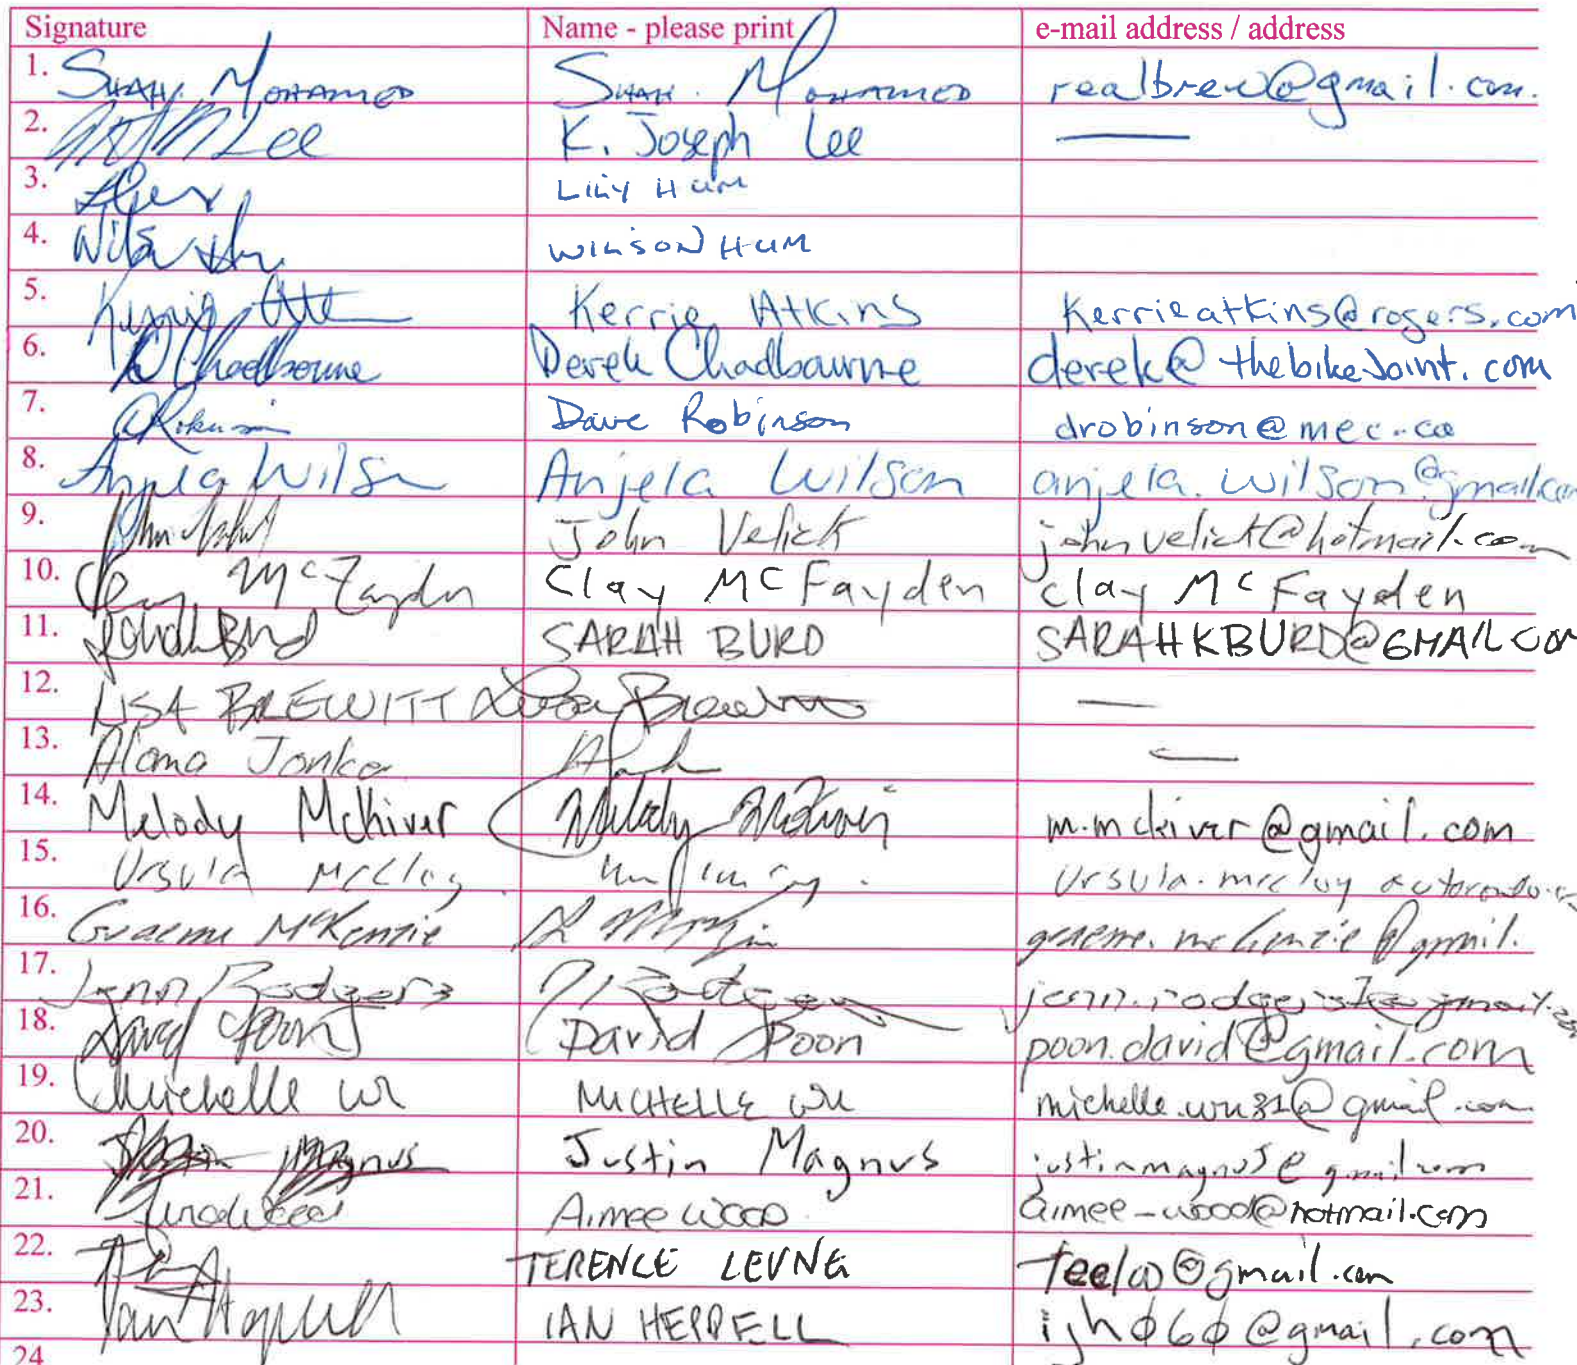 Signature Name - please print e-mail address / address
1. SHAH. MOHAMED SHAH. MOHAMED realbrew@gmail.com.
2. Lee K. Joseph Lee —
3. LILY HUM
4. WILSON HUM
5. Kerrie Atkins Kerrieatkins@rogers.com
6. D Chadbourne Derek Chadbourne derek@thebikejoint.com
7. DRobinson Dave Robinson drobinson@mec.ca
8. Anjela Wilson Anjela Wilson anjela.wilson@gmail.com
9. John Velick johnvelick@hotmail.com
10. Clay McFayden Clay McFayden Clay McFayden
11. Sarah Burd SARAH BURD SARAHKBURD@GMAIL COM
12. LISA BREWITT Lisa Brewitt —
13. Alana Jonker —
14. Melody McKiver Melody McKiver m.mckiver@gmail.com
15. Ursula McCloy
16. Graeme McKenzie graeme.mckenzie@gmail.
17. Jenn Rodgers
18. David Poon David Poon poon.david@gmail.com
19. Michelle Wu MICHELLE WU michelle.wu31@gmail.com
20. Magnus Justin Magnus justinmagnus@gmail.com
21. Aimee Wood aimee-wood@hotmail.com
22. TERENCE LEUNG
23. Ian Heppell IAN HEPPELL ijhφ6φ@gmail.com
24